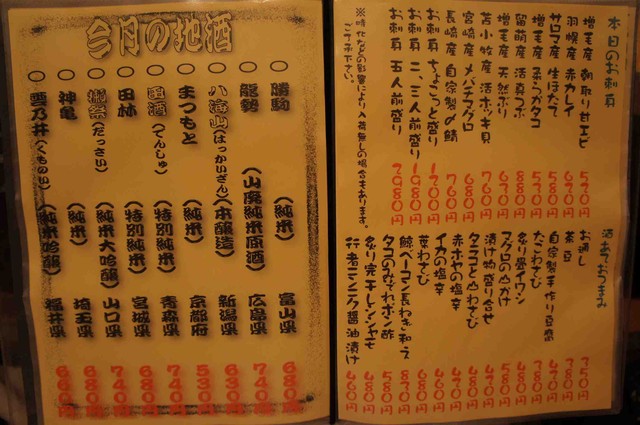 今月の地酒
○ 勝駒 (純米) 富山県 680円
○ 龍勢 (山廃純米原酒) 広島県 740円
○ 八海山(はっかいざん)(本醸造) 新潟県 630円
○ まつもと (純米) 京都府 530円
○ 田酒(でんしゅ) (特別純米) 青森県 740円
○ 田林 (特別純米) 宮城県 680円
○ 獺祭(だっさい) (純米大吟醸) 山口県 740円
○ 神亀 (純米) 埼玉県 680円
○ 雲乃井(くものい) (純米吟醸) 福井県 660円
本日のお刺身
増毛産 朝取り甘エビ 520円
羽幌産 赤カレイ 630円
サロマ産 生ほたて 580円
増毛産 柔らかタコ 530円
留萌産 活真つぶ 880円
増毛産 天然ぶり 630円
苫小牧産 活ホッキ貝 760円
宮崎産 メバチマグロ 680円
長崎産 自家製〆鯖 760円
お刺身 ちょこっと盛り 1200円
お刺身 二、三人前盛り 1980円
お刺身 五人前盛り 2980円
※時化などの影響により入荷無しの場合もあります。
ご了承下さい。
酒あておつまみ
お通し 350円
茶豆 380円
自家製手作り豆腐 430円
たこわさび 380円
炙り畳イワシ 480円
マグロの山かけ 580円
漬け物盛り合せ 430円
タコとろ山わさび 480円
赤ホヤの塩辛 430円
イカの塩辛 460円
茎わさび 460円
鯨ベーコン長ねぎ和え 830円
タコのうなれポン酢 580円
炙り完干しシシャモ 480円
行者ニンニク醤油漬け 460円